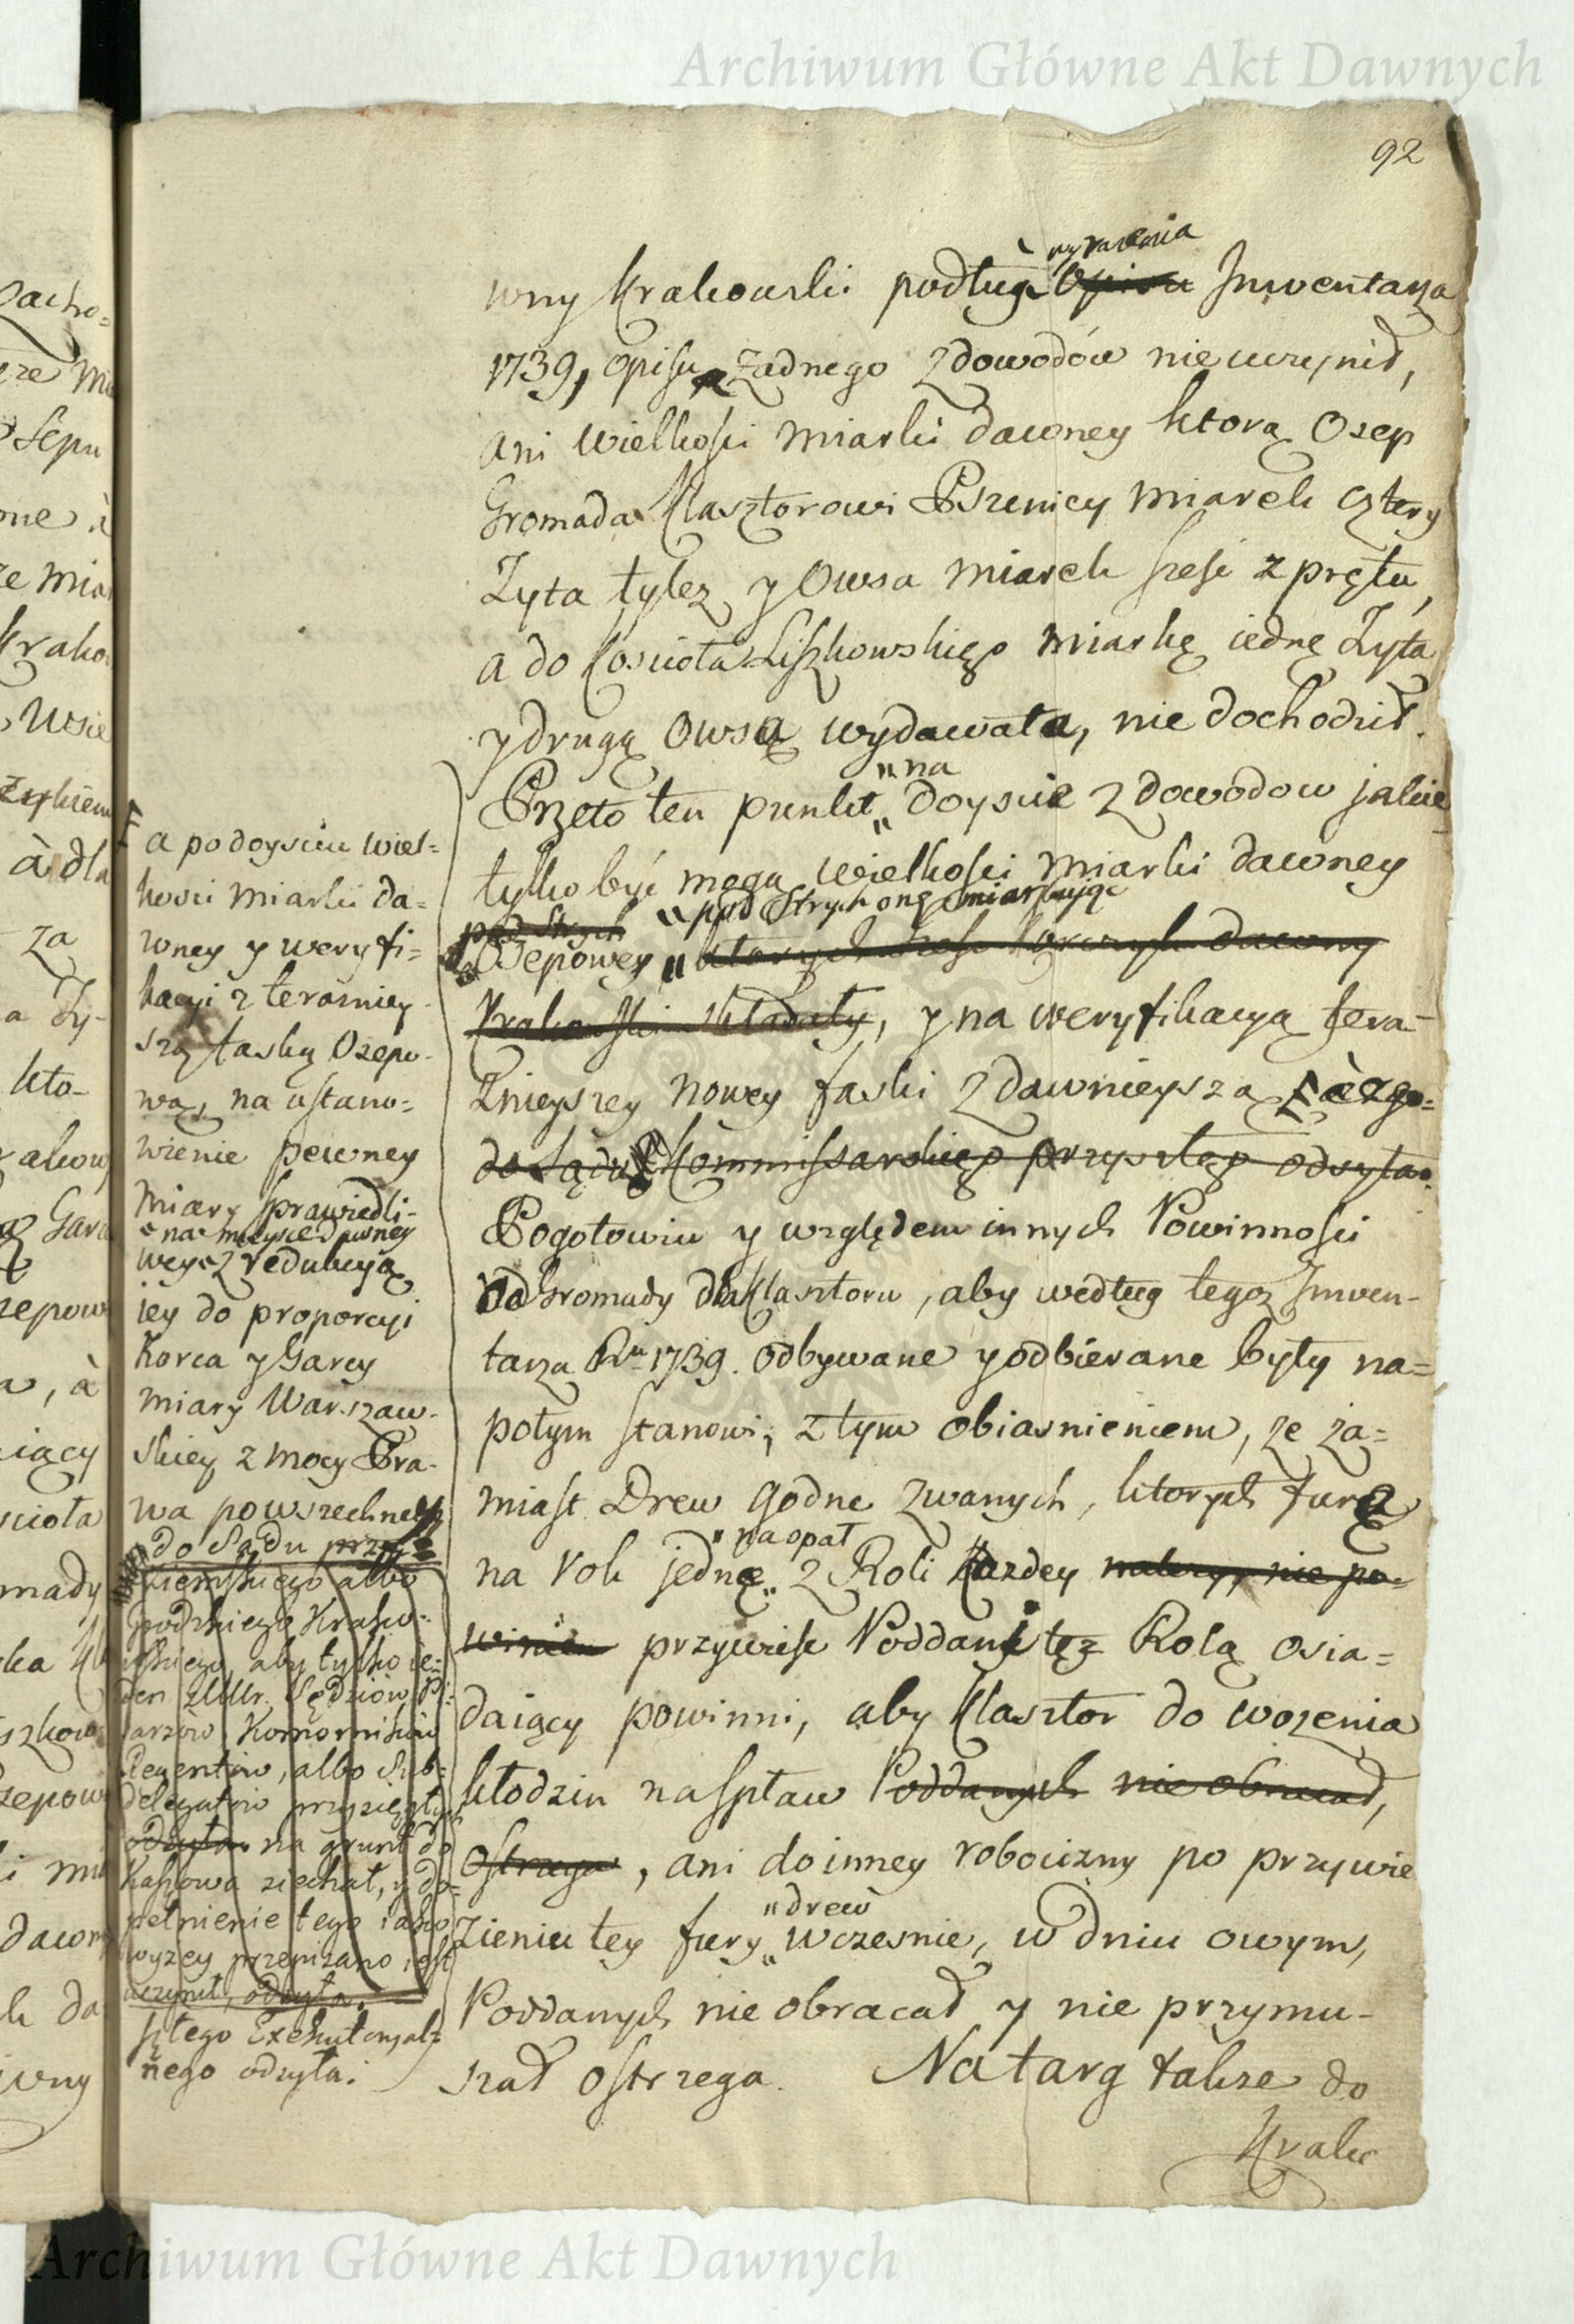 Archiwum Główne Akt Dawnych
92
wyrażenia
wny Krakowski podług Opisu Inwentarza
1739, opisu żadnego z dowodów nieuczynił,
ani wielkości miarki dawney ktorą Osep
Gromada Klasztorowi Pszenicy miarek cztery
Zyta tylez y Owsa miarek sześć z prętu,
a do Kościoła Liszkowskiego miarkę iednę Zyta
y drugą Owsa wydawała, nie dochodził.
"na
Przeto ten punkt" doyscie z dowodow jakie
tylko być mogą wielkości miarki dawney
pod Strych "pod Strych onę miarkując
Osepowey" ktorych sześć Korczyk dawny
Krakowski składały, y na weryfikacyą tera-
znieyszey nowey faski z dawnieyszą à zgo=
do Sądu Kommissarskiego przyszłego odsyła.
Pogotowiu y względem innych Powinności
od Gromady dla Klasztoru, aby według tegoz Inwen-
tarza Ru 1739. odbywane y odbierane były na=
potym stanowi, z tym obiasnieniem, ze za=
miast Drew godne zwanych, ktorych furę
"na opał
na rok jednę" z Roli kazdey nalezy, nie po=
winien przywieść Poddani tęz Rolą osia=
daiący powinni, aby Klasztor do wozenia
kłodzin na spław Poddanych nie obracał,
ostrzega, ani do inney robocizny po przywie
"drew
zieniu tey fury" wczesnie, w dniu owym,
Poddanych nie obracał y nie przymu-
szał ostrzega. Na targ takze do
Krako
a po doysciu wiel=
kości miarki da=
wney y weryfi=
kacyi z teraźniey-
szą faską Osepo-
wą, na ustano=
wienie pewney
miary sprawiedli-
"na mieysce dawney
wey" z redukcyą
iey do proporcyi
Korca y Garcy
miary Warszaw-
skiey z mocy Pra-
wa powszechne
do Sądu przy=
ziemskiego albo
grodzkiego Krako=
wskiego, aby tylko ie=
den z Ur. Sędziow Pi=
sarzów Komornikow
Regentow, albo Sub=
delegatow przysięgłych
odsyła na grunt do
Kaszowa ziechał, y do=
pełnienie tego iako
wyzey przepisano iest
uczynił, odsyła.
szłego Exekucyonal=
nego odsyła.
Archiwum Główne Akt Dawnych